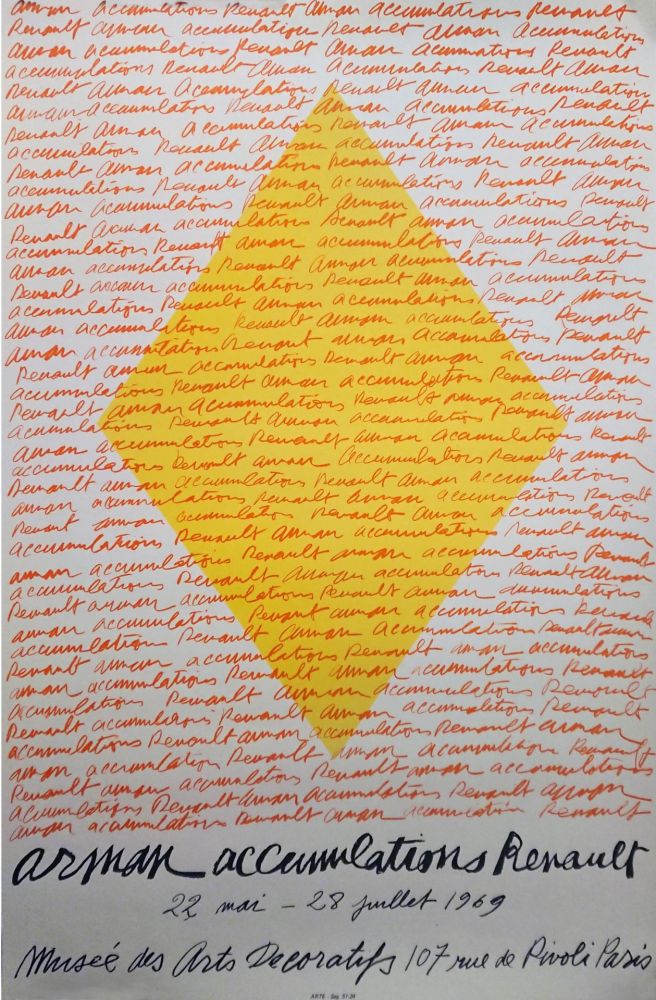 arman accumulations Renault arman accumulations Renault
Renault arman accumulation Renault arman accumulations
arman accumulations Renault arman accumulations Renault
accumulations Renault arman accumulations Renault arman
Renault arman accumulations Renault arman accumulation
arman accumulations Renault arman accumulations Renault
Renault arman accumulations Renault arman accumulations
accumulations Renault arman accumulations Renault arman
Renault arman accumulations Renault arman accumulations
accumulations Renault arman accumulations Renault arman
arman accumulations Renault arman accumulations Renault
Renault arman accumulations Renault arman accumulations
accumulations Renault arman accumulations Renault arman
arman accumulations Renault arman accumulations Renault
Renault arman accumulations Renault arman accumulations
accumulations Renault arman accumulations Renault arman
arman accumulations Renault arman accumulations Renault
arman accumulations Renault arman accumulations Renault
Renault arman accumulations Renault arman accumulations
accumulations Renault arman accumulations Renault arman
Renault arman accumulations Renault arman accumulations
accumulations Renault arman accumulations Renault arman
arman accumulations Renault arman accumulations Renault
accumulations Renault arman accumulations Renault arman
Renault arman accumulations Renault arman accumulations
arman accumulations Renault arman accumulations Renault
Renault arman accumulations Renault arman accumulations
accumulations Renault arman accumulations Renault arman
arman accumulations Renault arman accumulations Renault
accumulations Renault arman accumulations Renault arman
Renault arman accumulations Renault arman accumulations
arman accumulations Renault arman accumulations Renault
accumulations Renault arman accumulations Renault arman
Renault arman accumulations Renault arman accumulations
arman accumulations Renault arman accumulations Renault
accumulations Renault arman accumulations Renault
Renault accumulations Renault arman accumulations Renault
accumulations Renault arman accumulations Renault arman
arman accumulation Renault arman accumulation Renault
Renault arman accumulations Renault arman accumulations
accumulations Renault arman accumulations Renault arman
arman accumulations Renault arman accumulation Renault
arman accumulations Renault
22 mai - 28 juillet 1969
Musée des Arts Decoratifs 107 rue de Rivoli Paris